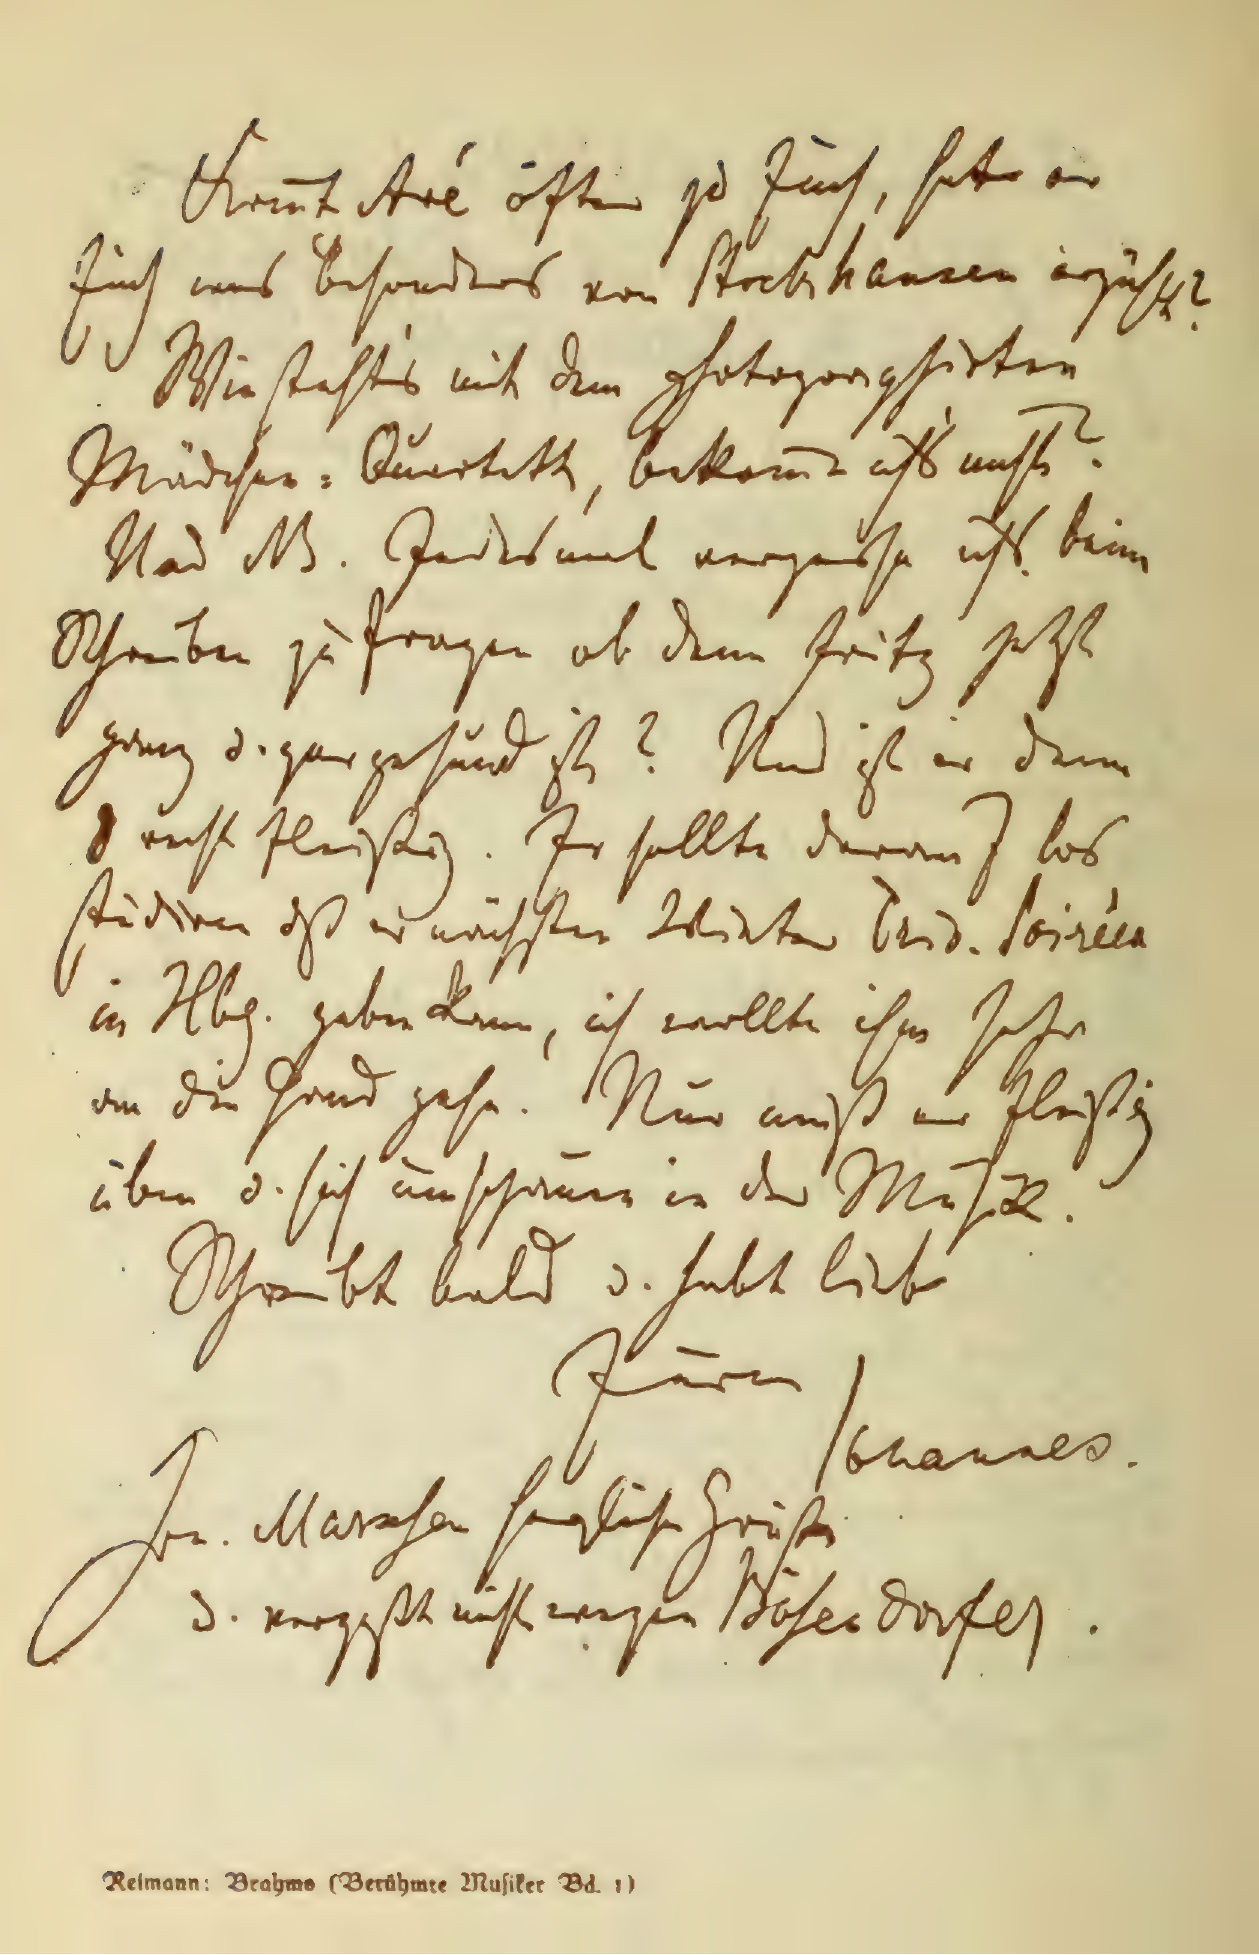 Komt Avé öfter zu Euch, hat er
Euch was besonders von Stockhausen erzählt?
Wie steht's mit dem photographirten
Mädchen=Quartett, bekomme ich's nicht?
Und NB. Jedesmal vergesse ich's beim
Schreiben zu fragen ob denn Fritz jetzt
ganz u. gar gesund ist? Und ist er denn
recht fleißig. Er sollte darauf los
studiren dß er nächsten Winter Trio-Soiréen
in Hbg. geben kann, ich wollte ihm sehr
an die Hand gehn. Nur muß er fleißig
üben u. sich umschauen in der Musik.
Schreibt bald u. habt lieb
Euren
Johannes.
Hrn. Marxsen herzliche Grüße
u. vergeßt nicht wegen Bösendorfer.
Reimann: Brahms (Berühmte Musiker Bd. 1)